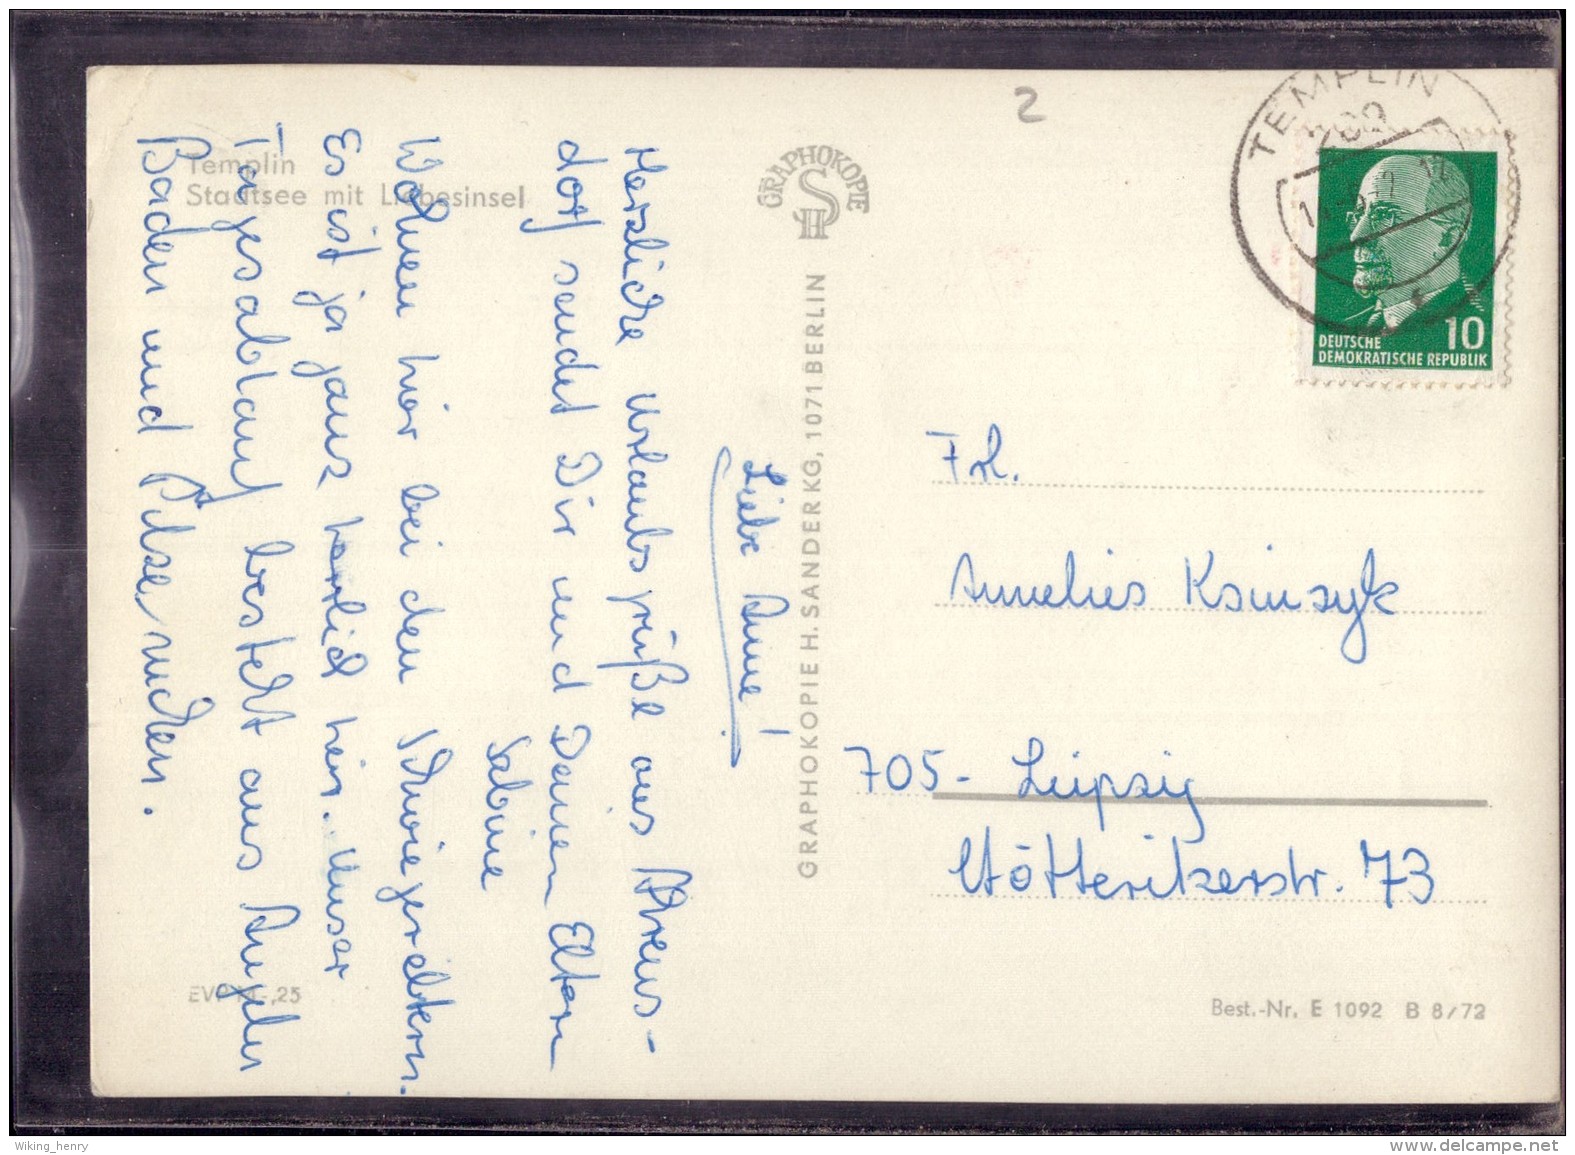 Templin
Stadtsee mit Liebesinsel
Liebe Anne!
Herzliche Urlaubsgrüße aus Ahrens-
dorf sendet Dir und Deinen Eltern
Sabine
Wohnen hier bei den Schwiegereltern.
Es ist ja ganz herrlich hier. Unser
Tagesablauf besteht aus Angeln
Baden und Pilze suchen.
GRAPHOKOPIE
HS
GRAPHOKOPIE H. SANDER KG, 1071 BERLIN
2
TEMPLIN
DEUTSCHE
DEMOKRATISCHE REPUBLIK
10
Frl.
Annelies Ksinzyk
705- Leipzig
Stötteritzerstr. 73
EVP M -,25
Best.-Nr. E 1092 B 8/72
Wiking_henry
www.delcampe.net